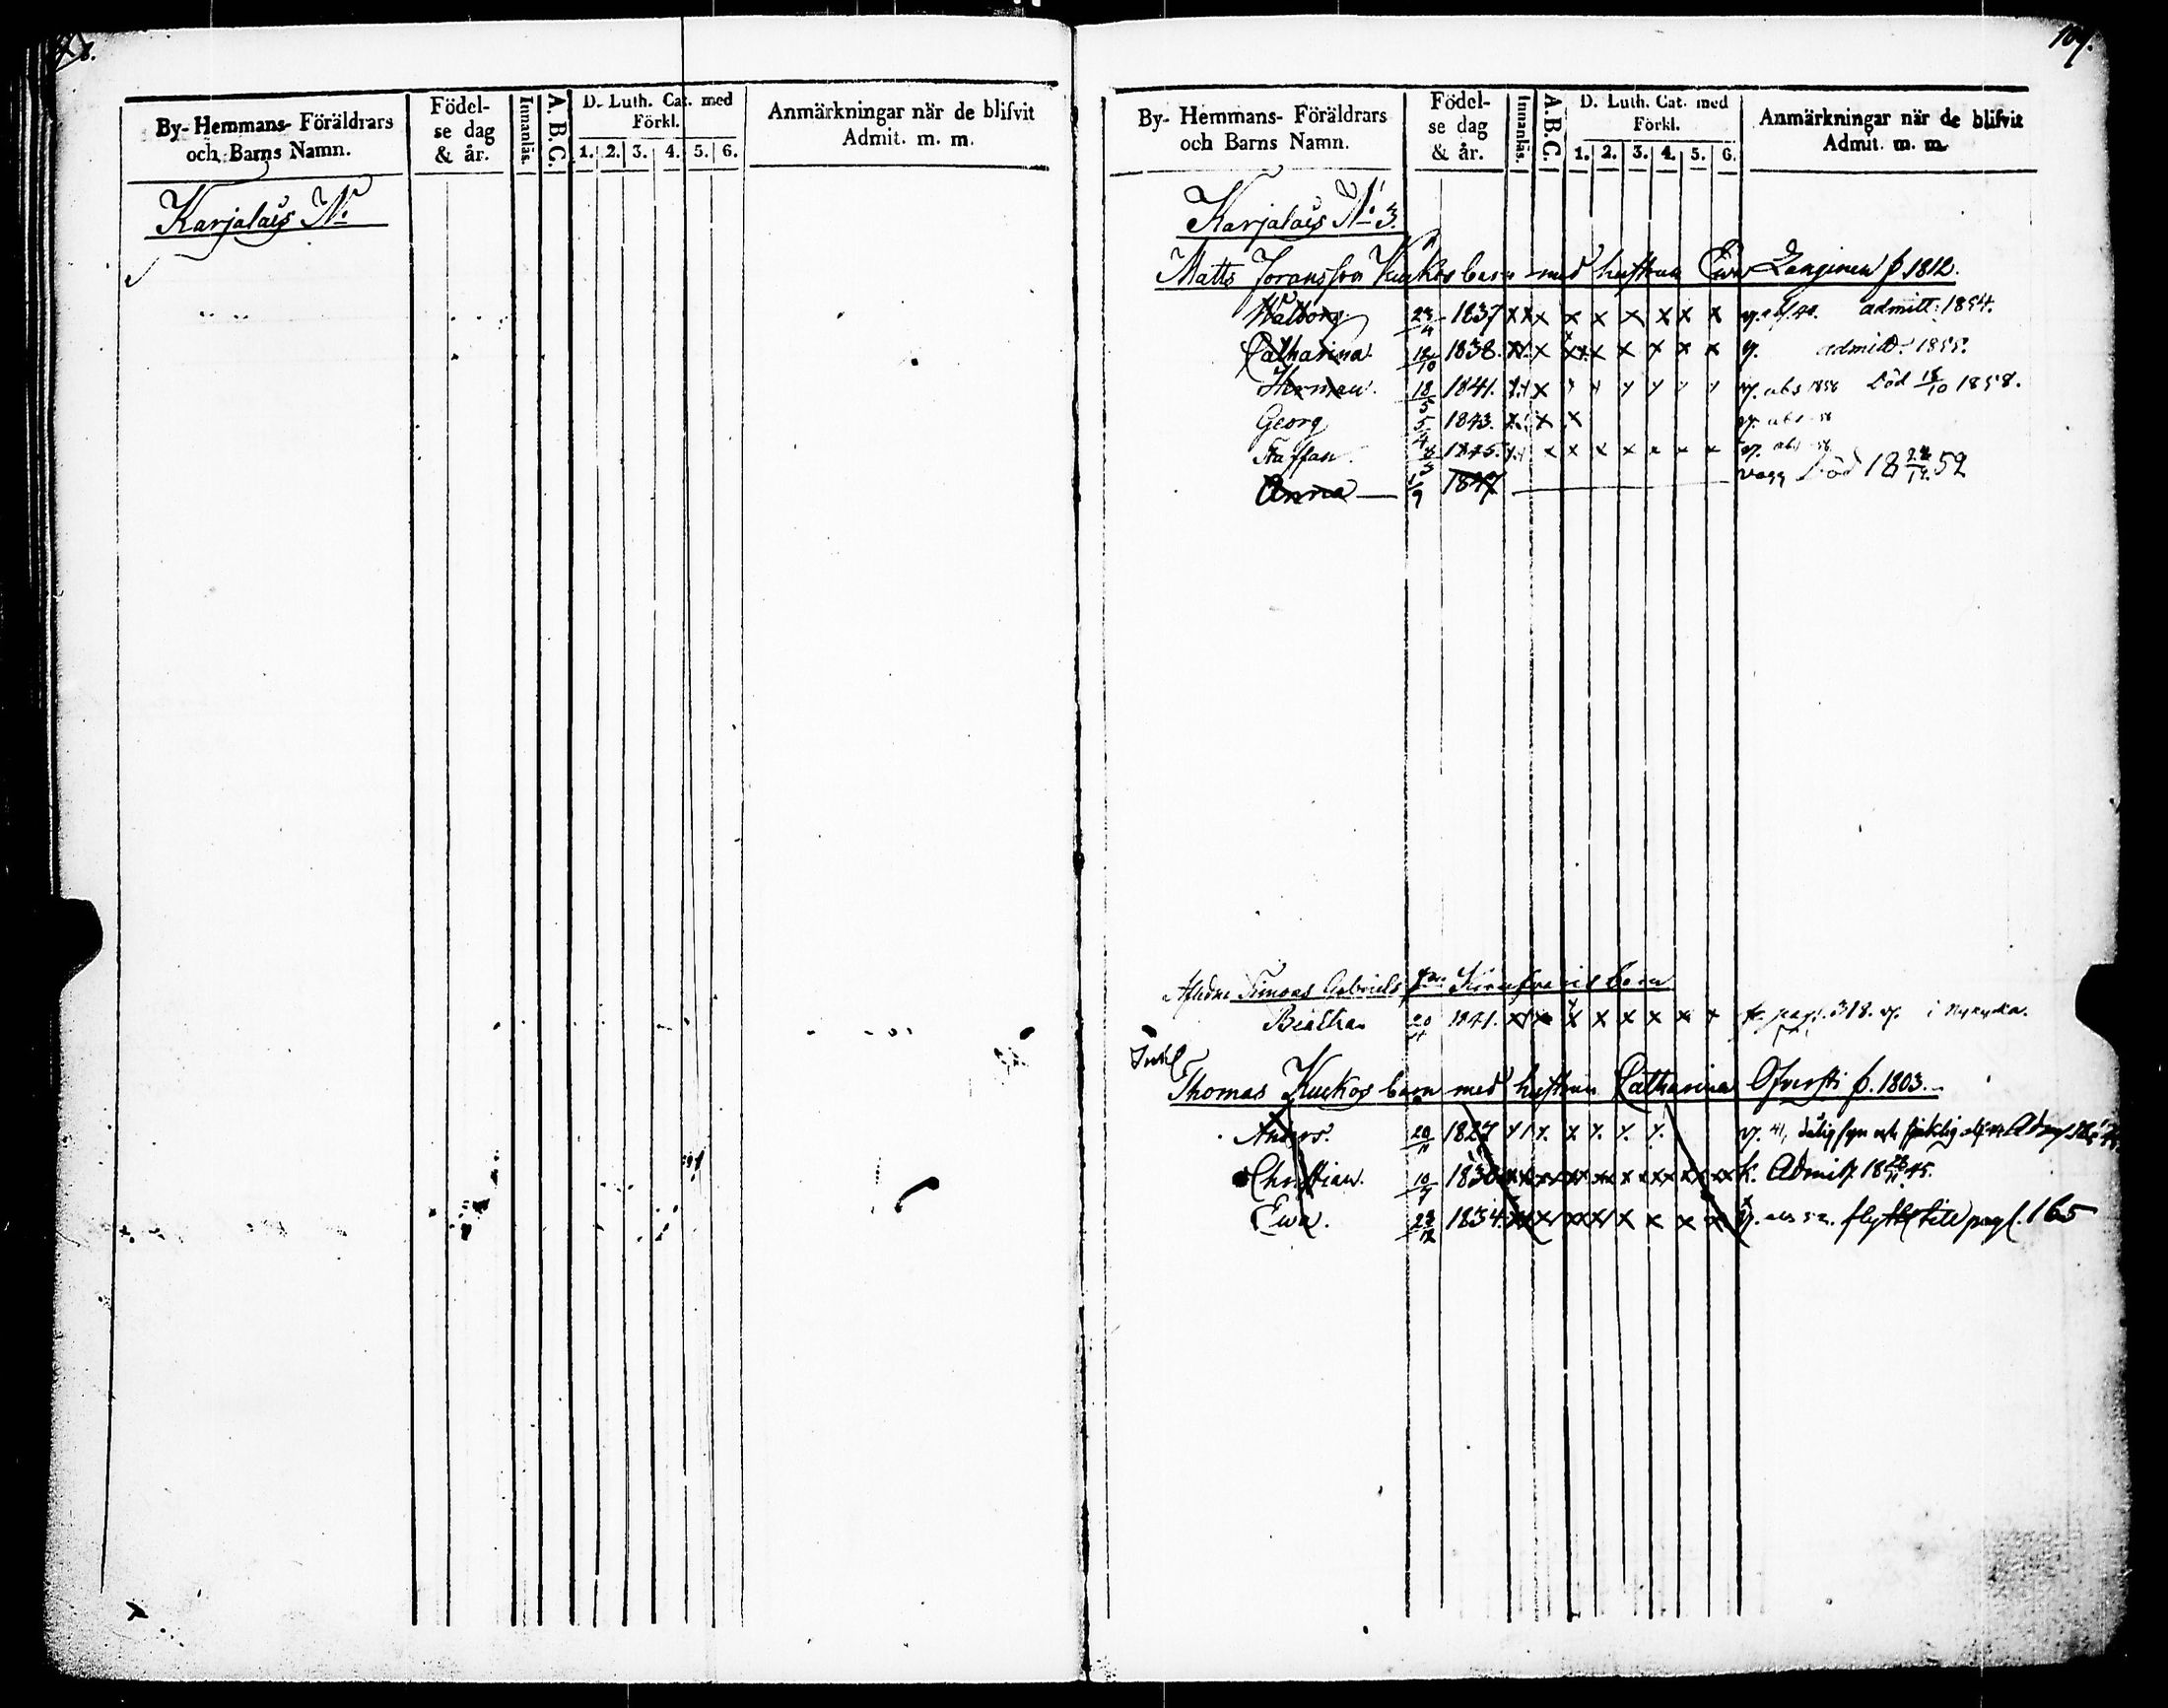 By- Hemmans- Föräldrars
och Barns Namn.
Födel-
se dag
& år.
Innanläs.
A. B. C.
D. Luth. Cat. med
Förkl.
1. 2. 3. 4. 5. 6.
Anmärkningar när de blifvit
Admit. m. m.
Karjalais No
107.
By- Hemmans- Föräldrars
och Barns Namn.
Födel-
se dag
& år.
Innanläs.
A. B. C.
D. Luth. Cat. med
Förkl.
1. 2. 3. 4. 5. 6.
Anmärkningar när de blifvit
Admit. m. m.
Karjalais No 3.
Matts Joransson Kuckos barn med hustrun Ewa f. 1812.
Walborg 23/4 1837 x x x x x x x x x admitt. 1854.
Catharina 18/10 1838. x x x x x x x x admitt. 1855.
Herman. 18/5 1841. x x abs 1858 Död 18/10 1858.
Georg 5/4 1843. x x x abs 58
Staffan. 1845. x x x x x x x abs 58
Anna 1/9 1847 Död 18 52
Simons Gabriels barn
Beatha 20 1841. x x x x x x x x pag. 318.
Inh
Thomas Kuckos barn med hustrun Catharina f. 1803.
Anders. 20/11 1827 41, dålig syn och
Christian. 10/7 1830 x x x x x x x k. Admitt. 18 45.
Ewa. 23/12 1834. x x x x x x x abs 52. flytt till pag. 165